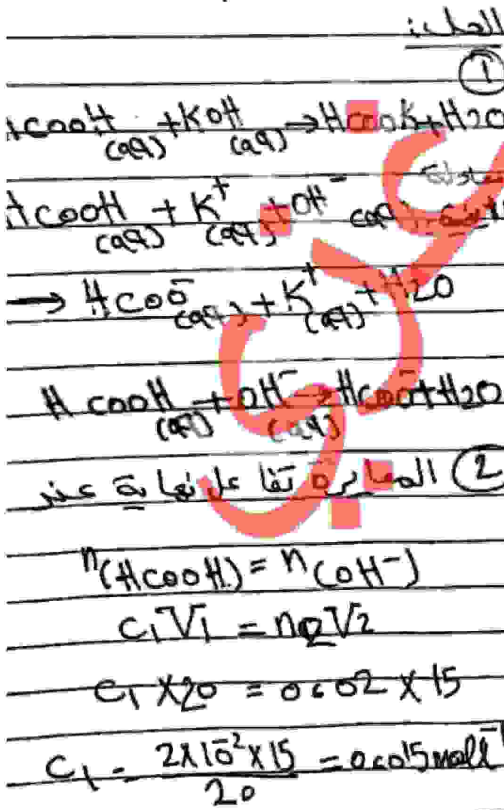 الحل:
①
HCOOH(aq) + KOH(aq) → HCOOK + H2O
HCOOH(aq) + K⁺(aq) + OH⁻(aq)
→ HCOO⁻(aq) + K⁺(aq) + H2O
HCOOH(aq) + OH⁻(aq) → HCOO⁻ + H2O
② المعايرة تفاعل نهاية عند
n(HCOOH) = n(OH⁻)
C₁V₁ = n₂V₂
C₁ × 20 = 0,02 × 15
C₁ = 2×10⁻²×15 / 20 = 0,015 mol l⁻¹